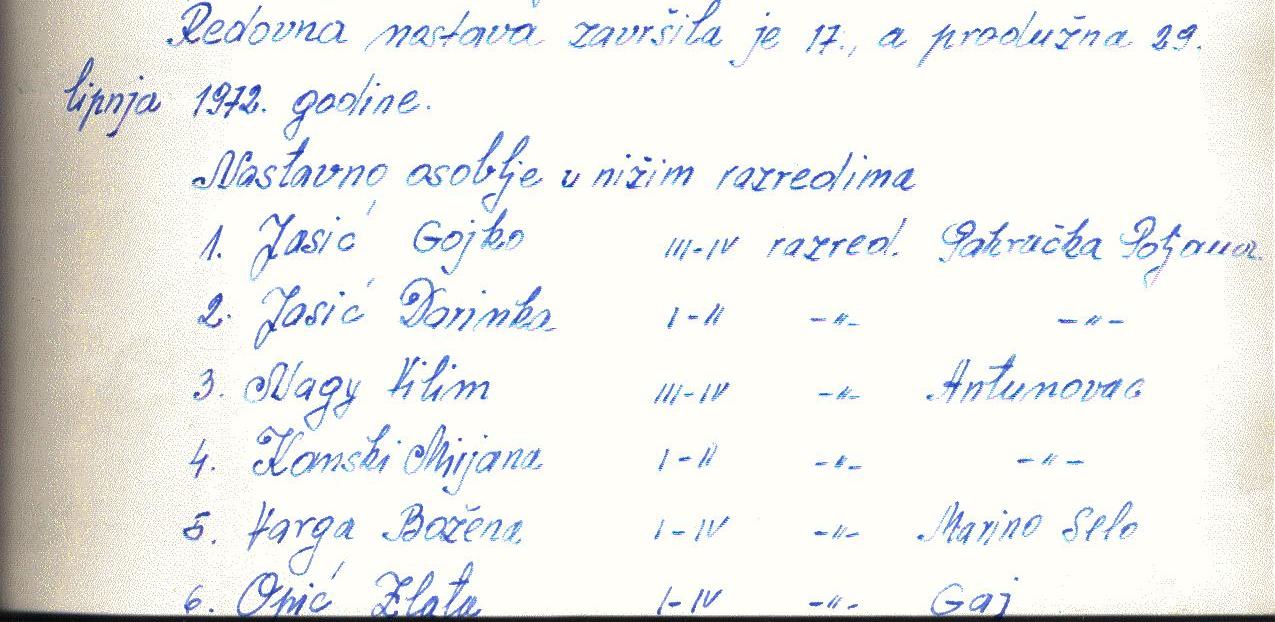 Redovna nastava završila je 17., a produžna 29.
lipnja 1972. godine.
Nastavno osoblje u nižim razredima
1. Jasić Gojko III-IV razred. Pakračka Poljana
2. Jasić Darinka I-II -"- -"-
3. Nagy Vilim III-IV -"- Antunovac
4. Konski Mirjana I-II -"- -"-
5. Varga Božena I-IV -"- Marino Selo
6. Opić Zlata I-IV -"- Gaj